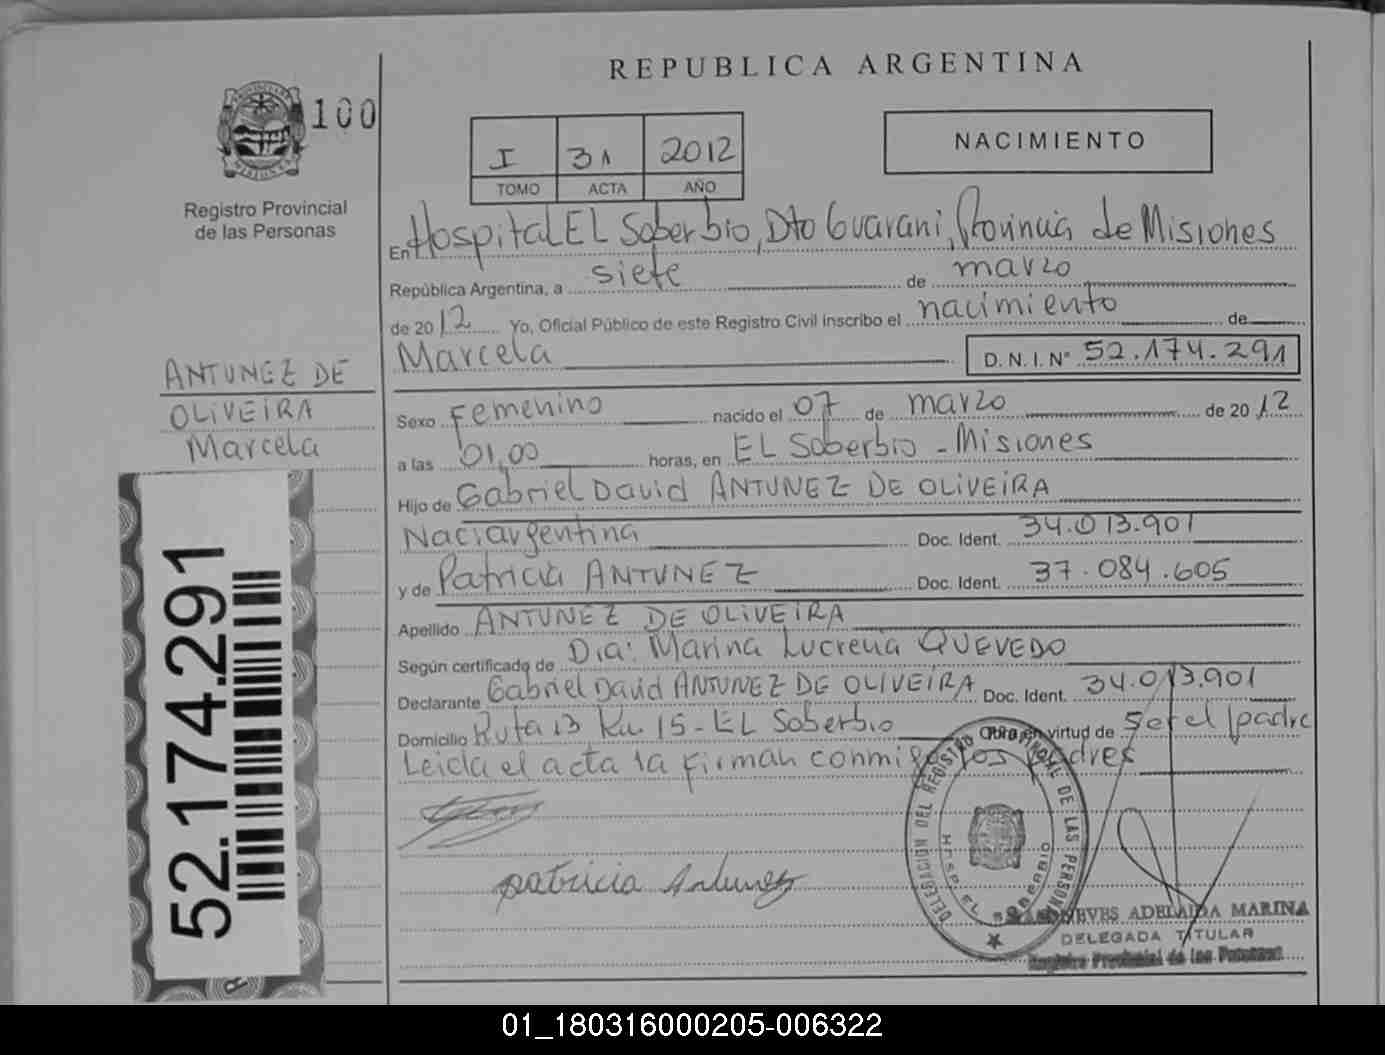 REPUBLICA ARGENTINA
100
I 31 2012
TOMO ACTA AÑO
NACIMIENTO
Registro Provincial
de las Personas
En Hospital EL Soberbio, Dto Guarani, Provincia de Misiones
República Argentina, a siete de marzo
de 2012 Yo, Oficial Público de este Registro Civil inscribo el nacimiento de
Marcela D.N.I. N° 52.174.291
ANTUNEZ DE
OLIVEIRA
Marcela
Sexo Femenino nacido el 07 de marzo de 2012
a las 01,00 horas, en EL Soberbio - Misiones
Hijo de Gabriel David ANTUNEZ DE OLIVEIRA
Naci argentina Doc. Ident. 34.013.901
y de Patricia ANTUNEZ Doc. Ident. 37.084.605
Apellido ANTUNEZ DE OLIVEIRA
Según certificado de Dra: Marina Lucrecia QUEVEDO
Declarante Gabriel David ANTUNEZ DE OLIVEIRA Doc. Ident. 34.013.901
Domicilio Ruta 13 Km 15 - EL Soberbio Obra en virtud de Ser el padre
Leida el acta la firman conmigo los padres
patricia Antunez
52.174.291
DELEGACION DEL REGISTRO PROVINCIAL DE LAS PERSONAS
HOSP. EL SOBERBIO
NEVES ADELAIDA MARINA
DELEGADA TITULAR
Registro Provincial de las Personas
01_180316000205-006322